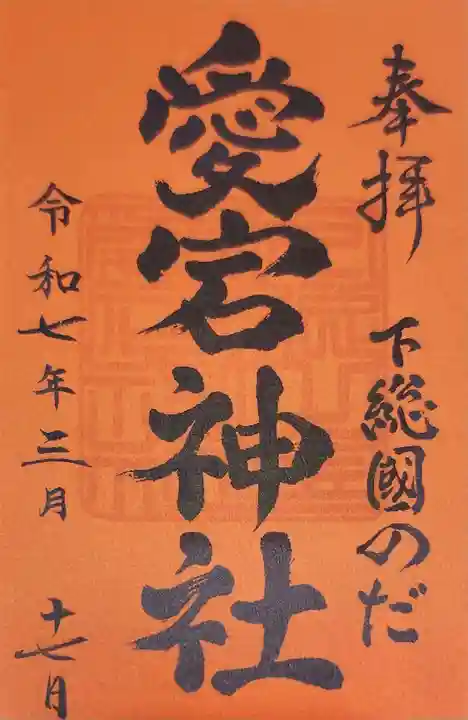 奉拝 下総國のだ
愛宕神社
令和七年三月十七日